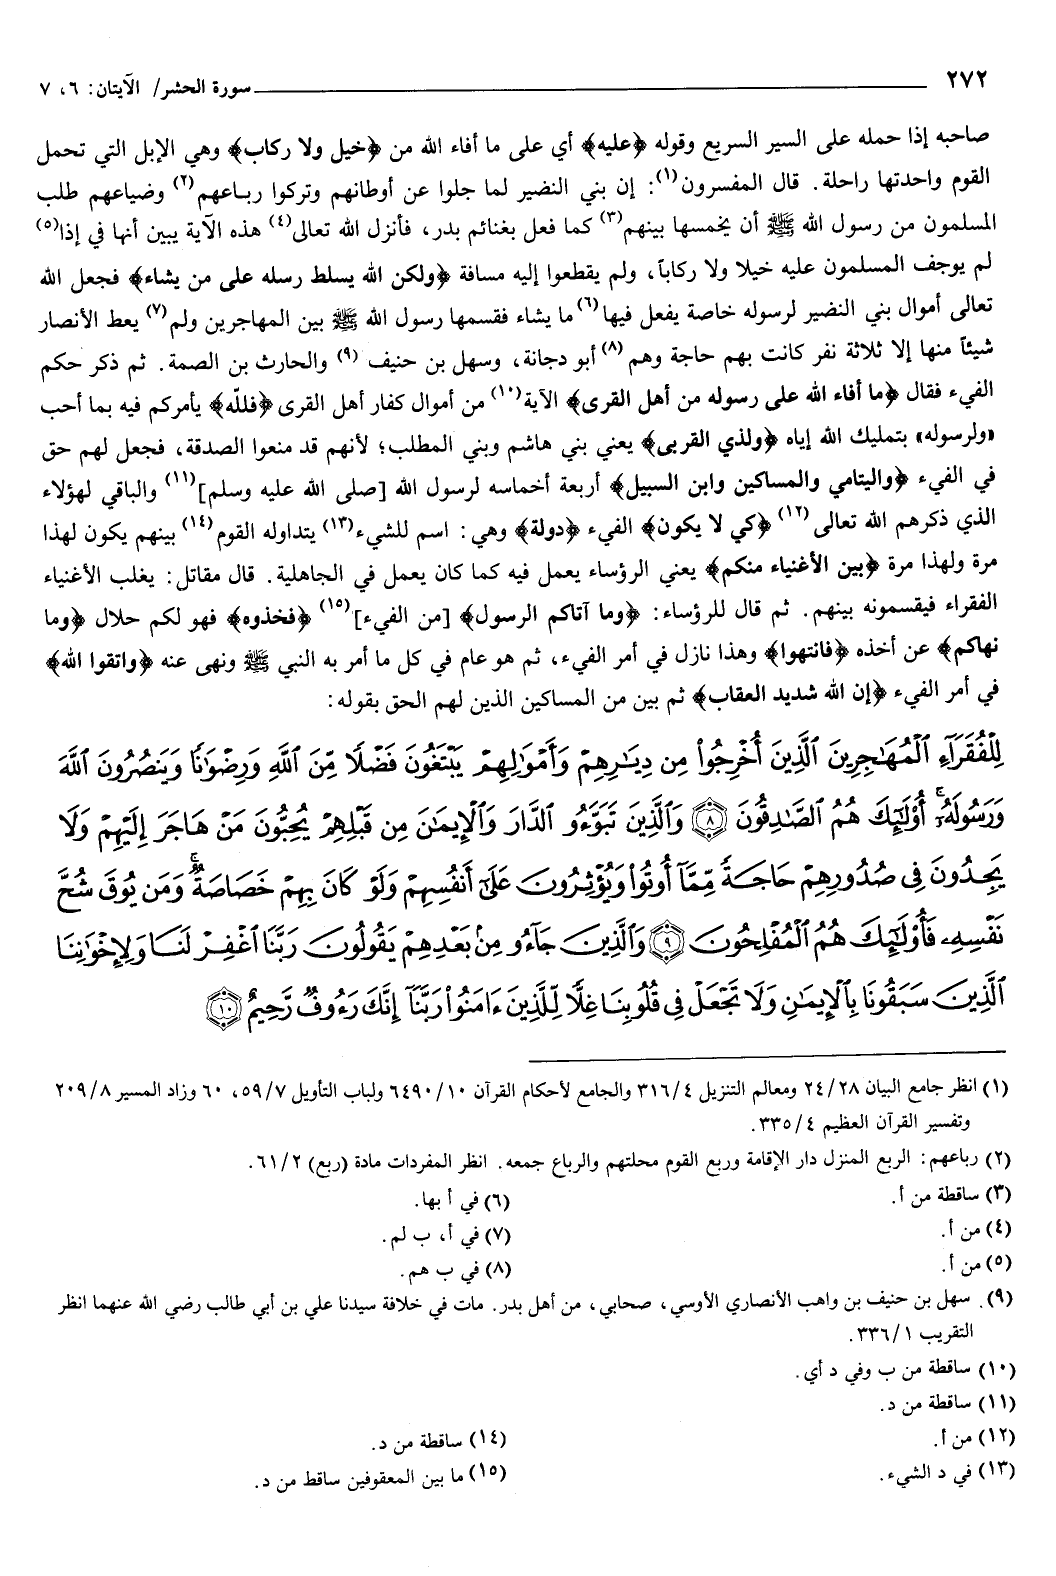 ٢٧٢ سورة الحشر/ الآيتان: ٦، ٧
صاحبه إذا حمله على السير السريع وقوله ﴿عليه﴾ أي على ما أفاء الله من ﴿خيل ولا ركاب﴾ وهي الإبل التي تحمل
القوم واحدتها راحلة. قال المفسرون(١): إن بني النضير لما جلوا عن أوطانهم وتركوا رباعهم(٢) وضياعهم طلب
المسلمون من رسول الله ﷺ أن يخمسها بينهم(٣) كما فعل بغنائم بدر، فأنزل الله تعالى(٤) هذه الآية يبين أنها في إذا(٥)
لم يوجف المسلمون عليه خيلا ولا ركاباً، ولم يقطعوا إليه مسافة ﴿ولكن الله يسلط رسله على من يشاء﴾ فجعل الله
تعالى أموال بني النضير لرسوله خاصة يفعل فيها(٦) ما يشاء فقسمها رسول الله ﷺ بين المهاجرين ولم(٧) يعط الأنصار
شيئاً منها إلا ثلاثة نفر كانت بهم حاجة وهم(٨) أبو دجانة، وسهل بن حنيف (٩) والحارث بن الصمة. ثم ذكر حكم
الفيء فقال ﴿ما أفاء الله على رسوله من أهل القرى﴾ الآية(١٠) من أموال كفار أهل القرى ﴿فللّه﴾ يأمركم فيه بما أحب
«ولرسوله» بتمليك الله إياه ﴿ولذي القربى﴾ يعني بني هاشم وبني المطلب؛ لأنهم قد منعوا الصدقة، فجعل لهم حق
في الفيء ﴿واليتامي والمساكين وابن السبيل﴾ أربعة أخماسه لرسول الله [صلى الله عليه وسلم](١١) والباقي لهؤلاء
الذي ذكرهم الله تعالى(١٢) ﴿كي لا يكون﴾ الفيء ﴿دولة﴾ وهي: اسم للشيء(١٣) يتداوله القوم(١٤) بينهم يكون لهذا
مرة ولهذا مرة ﴿بين الأغنياء منكم﴾ يعني الرؤساء يعمل فيه كما كان يعمل في الجاهلية. قال مقاتل: يغلب الأغنياء
الفقراء فيقسمونه بينهم. ثم قال للرؤساء: ﴿وما آتاكم الرسول﴾ [من الفيء](١٥) ﴿فخذوه﴾ فهو لكم حلال ﴿وما
نهاكم﴾ عن أخذه ﴿فانتهوا﴾ وهذا نازل في أمر الفيء، ثم هو عام في كل ما أمر به النبي ﷺ ونهى عنه ﴿واتقوا الله﴾
في أمر الفيء ﴿إن الله شديد العقاب﴾ ثم بين من المساكين الذين لهم الحق بقوله:
لِلْفُقَرَآءِ الْمُهَٰجِرِينَ الَّذِينَ أُخْرِجُوا۟ مِن دِيَٰرِهِمْ وَأَمْوَٰلِهِمْ يَبْتَغُونَ فَضْلًا مِّنَ اللَّهِ وَرِضْوَٰنًا وَيَنصُرُونَ اللَّهَ
وَرَسُولَهُۥٓ ۚ أُو۟لَٰٓئِكَ هُمُ الصَّٰدِقُونَ ﴿٨﴾ وَالَّذِينَ تَبَوَّءُو الدَّارَ وَالْإِيمَٰنَ مِن قَبْلِهِمْ يُحِبُّونَ مَنْ هَاجَرَ إِلَيْهِمْ وَلَا
يَجِدُونَ فِى صُدُورِهِمْ حَاجَةً مِّمَّآ أُوتُوا۟ وَيُؤْثِرُونَ عَلَىٰٓ أَنفُسِهِمْ وَلَوْ كَانَ بِهِمْ خَصَاصَةٌ ۚ وَمَن يُوقَ شُحَّ
نَفْسِهِۦ فَأُو۟لَٰٓئِكَ هُمُ الْمُفْلِحُونَ ﴿٩﴾ وَالَّذِينَ جَآءُو مِنۢ بَعْدِهِمْ يَقُولُونَ رَبَّنَا اغْفِرْ لَنَا وَلِإِخْوَٰنِنَا
الَّذِينَ سَبَقُونَا بِالْإِيمَٰنِ وَلَا تَجْعَلْ فِى قُلُوبِنَا غِلًّا لِّلَّذِينَ ءَامَنُوا۟ رَبَّنَآ إِنَّكَ رَءُوفٌ رَّحِيمٌ ﴿١٠﴾
(١) انظر جامع البيان ٢٤/٢٨ ومعالم التنزيل ٣١٦/٤ والجامع لأحكام القرآن ٦٤٩٠/١٠ ولباب التأويل ٥٩/٧، ٦٠ وزاد المسير ٢٠٩/٨
وتفسير القرآن العظيم ٣٣٥/٤.
(٢) رباعهم: الربع المنزل دار الإقامة وربع القوم محلتهم والرباع جمعه. انظر المفردات مادة (ربع) ٦١/٢.
(٣) ساقطة من أ. (٦) في أ بها.
(٤) من أ. (٧) في أ، ب لم.
(٥) من أ. (٨) في ب هم.
(٩). سهل بن حنيف بن واهب الأنصاري الأوسي، صحابي، من أهل بدر. مات في خلافة سيدنا علي بن أبي طالب رضي الله عنهما انظر
التقريب ٣٣٦/١.
(١٠) ساقطة من ب وفي د أي.
(١١) ساقطة من د.
(١٢) من أ. (١٤) ساقطة من د.
(١٣) في د الشيء. (١٥) ما بين المعقوفين ساقط من د.